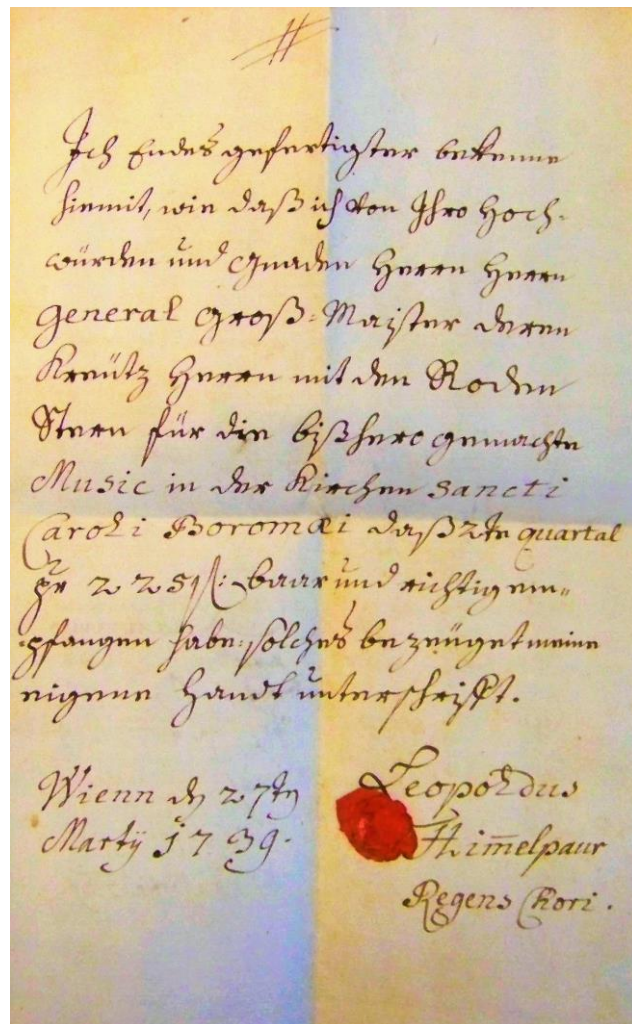 Ich Endes gefertigter bekenne
hiemit, wie daß ich von Ihro Hoch-
würden und Gnaden Herrn Herrn
General Groß-Maister deren
Kreütz Herrn mit den Roden
Stern für die bißhero gemachte
Music in der Kirchen Sancti
Caroli Boromæi daß 2te quartal
pr 225 fl: baar und richtig em-
pfangen habe, solches bezeüget meine
eigene Handt unterschrifft.
Wienn den 27ten
Leopoldus
Martÿ 1739.
Him̅elpaur
Regens Chori.